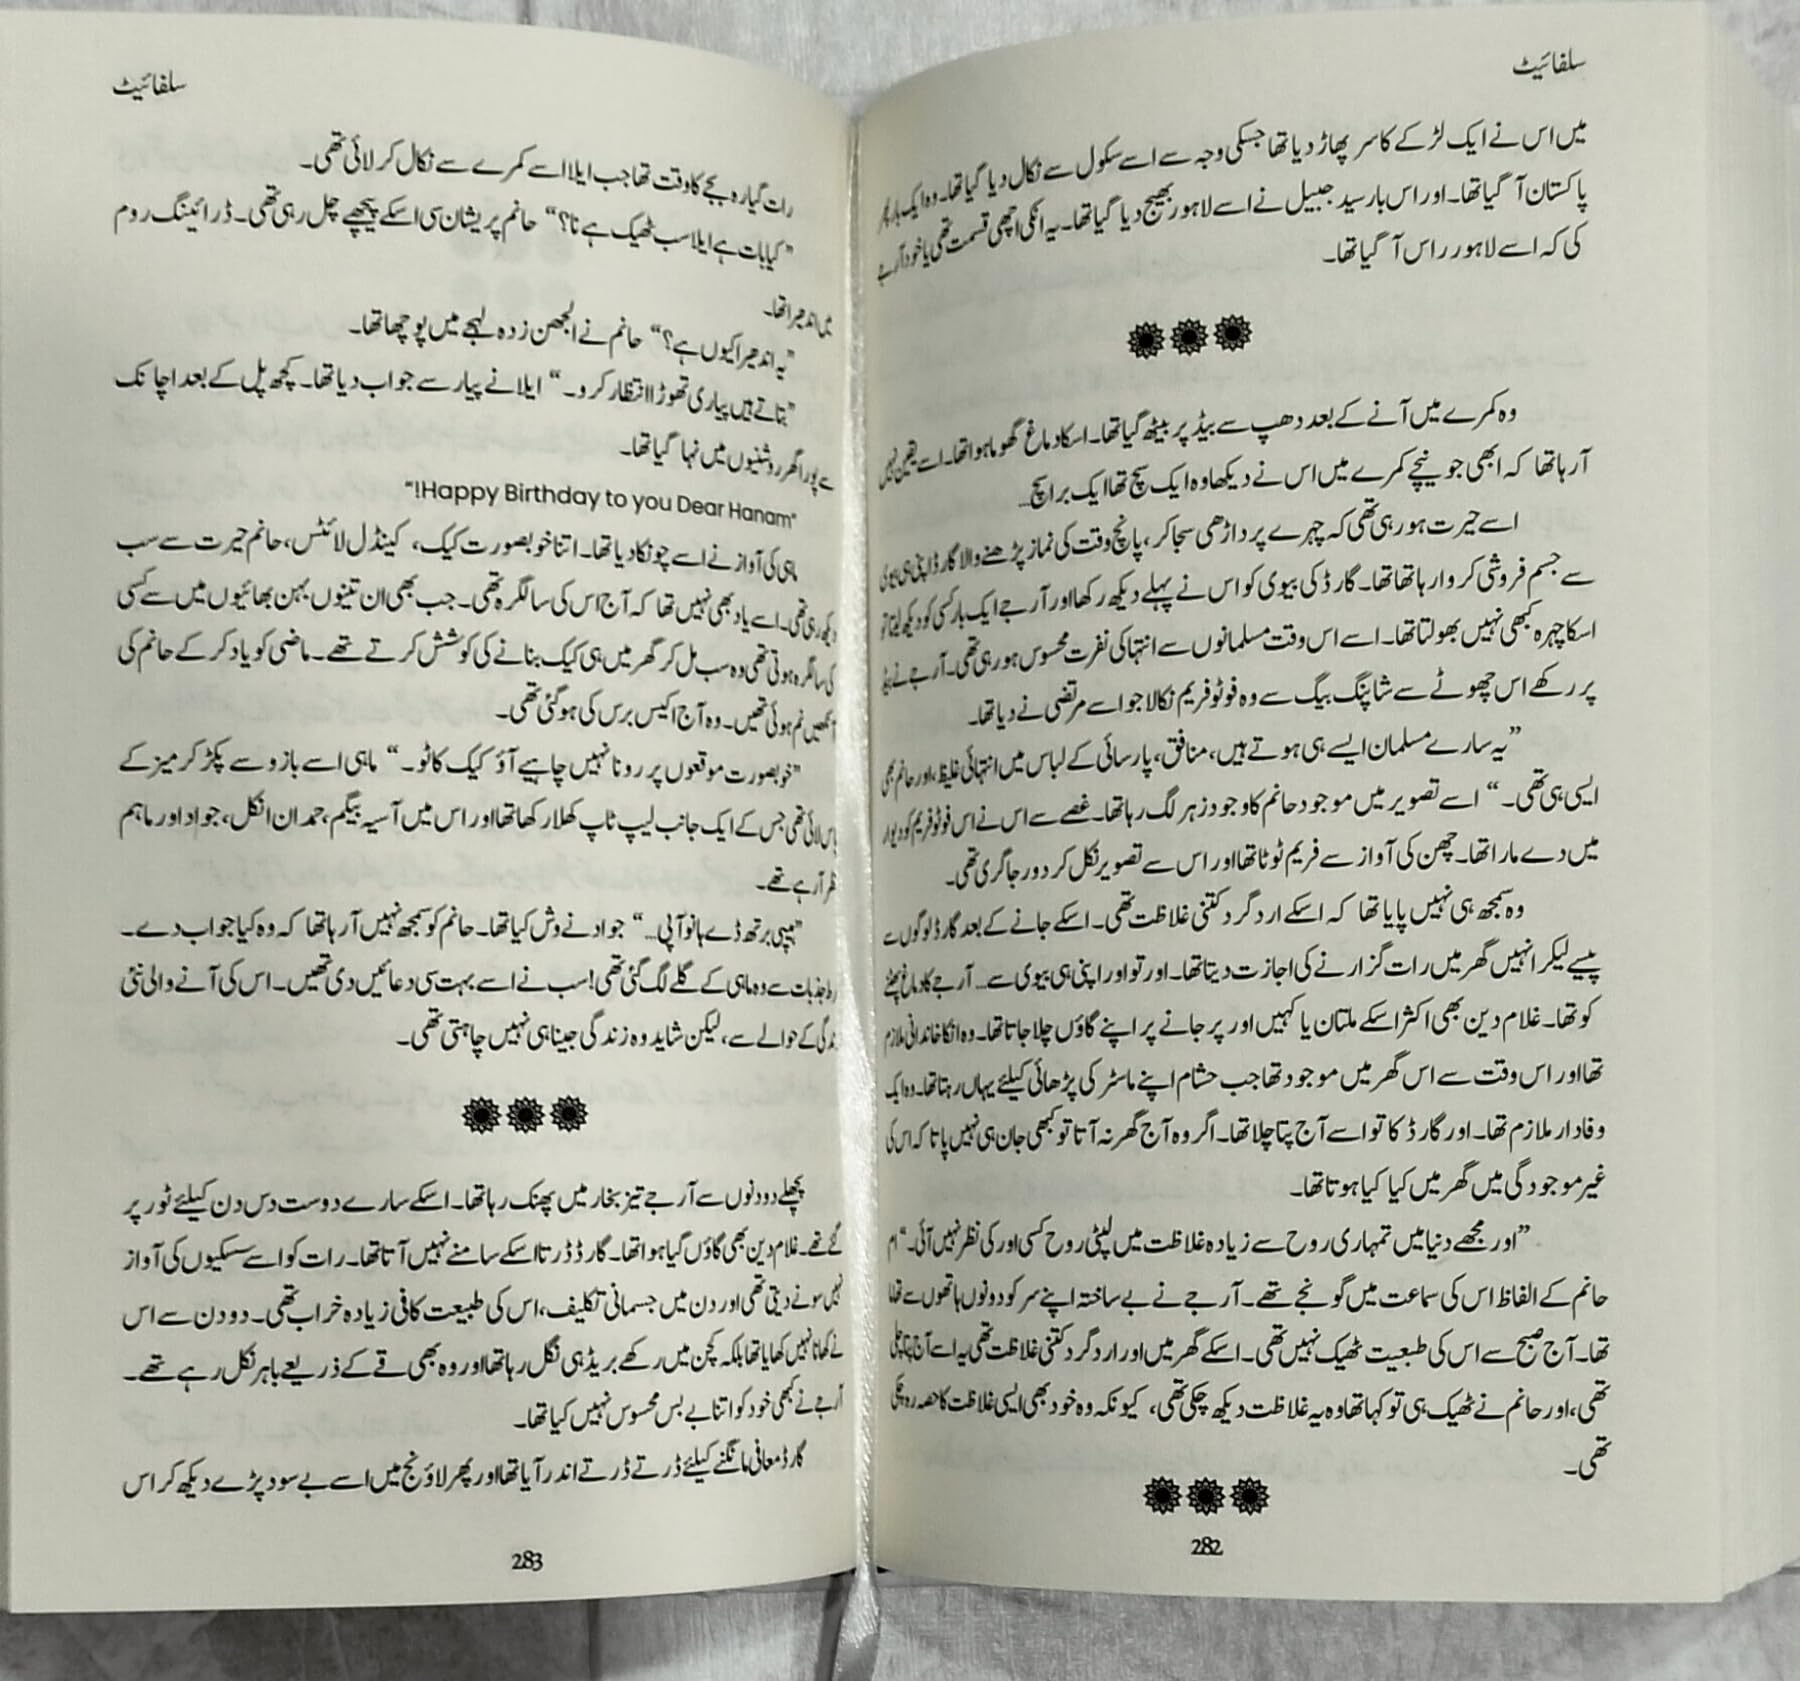 سلفائیٹ
میں اس نے ایک لڑکے کا سر پھاڑ دیا تھا جسکی وجہ سے اسے سکول سے نکال دیا گیا تھا۔ وہ ایک بار پھر
پاکستان آ گیا تھا۔ اور اس بار سید جبیل نے اسے لاہور بھیج دیا گیا تھا۔ یہ انکی اچھی قسمت تھی یا خود آرجے
کی کہ اسے لاہور راس آ گیا تھا۔
وہ کمرے میں آنے کے بعد دھپ سے بیڈ پر بیٹھ گیا تھا۔ اسکا دماغ گھوما ہوا تھا۔ اسے یقین نہیں
آرہا تھا کہ ابھی جو نیچے کمرے میں اس نے دیکھا وہ ایک سچ تھا ایک برا سچ۔۔
اسے حیرت ہو رہی تھی کہ چہرے پر داڑھی سجا کر، پانچ وقت کی نماز پڑھنے والا گارڈ اپنی ہی بیوی
سے جسم فروشی کروا رہا تھا تھا۔ گارڈ کی بیوی کو اس نے پہلے دیکھ رکھا اور آر جے ایک بار کسی کو دیکھ لیتا تو
اسکا چہرہ کبھی نہیں بھولتا تھا۔ اسے اس وقت مسلمانوں سے انتہا کی نفرت محسوس ہو رہی تھی۔ آرجے نے بیڈ
پر رکھے اس چھوٹے سے شاپنگ بیگ سے وہ فوٹو فریم نکالا جو اسے مرتضی نے دیا تھا۔
”یہ سارے مسلمان ایسے ہی ہوتے ہیں، منافق، پارسائی کے لباس میں انتہائی غلیظ، اور حانم بھی
ایسی ہی تھی۔“ اسے تصویر میں موجود حانم کا وجود زہر لگ رہا تھا۔ غصے سے اس نے اس فوٹو فریم کو دیوار
میں دے مارا تھا۔ چھن کی آواز سے فریم ٹوٹا تھا اور اس سے تصویر نکل کر دور جا گری تھی۔
وہ سمجھ ہی نہیں پایا تھا کہ اسکے ارد گرد کتنی غلاظت تھی۔ اسکے جانے کے بعد گارڈ لوگوں سے
پیسے لیکر انہیں گھر میں رات گزارنے کی اجازت دیتا تھا۔ اور تو اور اپنی ہی بیوی سے۔۔ آر جے کا دماغ پھٹنے
کو تھا۔ غلام دین بھی اکثر اسکے ملتان یا کہیں اور پر جانے پر اپنے گاؤں چلا جاتا تھا۔ وہ انکا خاندانی ملازم
تھا اور اس وقت سے اس گھر میں موجود تھا جب حشام اپنے ماسٹر کی پڑھائی کیلئے یہاں رہتا تھا۔ وہ ایک
وفادار ملازم تھا۔ اور گارڈ کا تو اسے آج پتا چلا تھا۔ اگر وہ آج گھر نہ آتا تو کبھی جان ہی نہیں پاتا کہ اس کی
غیر موجودگی میں گھر میں کیا کیا ہوتا تھا۔
”اور مجھے دنیا میں تمہاری روح سے زیادہ غلاظت میں لپٹی روح کسی اور کی نظر نہیں آئی۔“ ام
حانم کے الفاظ اس کی سماعت میں گونجے تھے۔ آرجے نے بے ساختہ اپنے سر کو دونوں ہاتھوں سے تھاما
تھا۔ آج صبح سے اس کی طبعیت ٹھیک نہیں تھی۔ اسکے گھر میں اور ارد گرد کتنی غلاظت تھی یہ اسے آج پتا چلی
تھی، اور حانم نے ٹھیک ہی تو کہا تھا وہ یہ غلاظت دیکھ چکی تھی، کیونکہ وہ خود بھی ایسی غلاظت کا حصہ رہ چکی
تھی۔
282
سلفائیٹ
رات گیارہ بجے کا وقت تھا جب ایلا اسے کمرے سے نکال کر لائی تھی۔
”کیا بات ہے ایلا سب ٹھیک ہے نا؟“ حانم پریشان سی اسکے پیچھے چل رہی تھی۔ ڈرائینگ روم
میں اندھیرا تھا۔
”یہ اندھیرا کیوں ہے؟“ حانم نے الجھن زدہ لہجے میں پوچھا تھا۔
”بتاتے ہیں پیاری تھوڑا انتظار کرو۔“ ایلا نے پیار سے جواب دیا تھا۔ کچھ پل کے بعد اچانک
سے پورا گھر روشنیوں میں نہا گیا تھا۔
“!Happy Birthday to you Dear Hanam”
ماہی کی آواز نے اسے چونکا دیا تھا۔ اتنا خوبصورت کیک، کینڈل لائٹس، حانم حیرت سے سب
دیکھ رہی تھی۔ اسے یاد بھی نہیں تھا کہ آج اس کی سالگرہ تھی۔ جب بھی ان تینوں بہن بھائیوں میں سے کسی
کی سالگرہ ہوتی تھی وہ سب مل کر گھر میں ہی کیک بنانے کی کوشش کرتے تھے۔ ماضی کو یاد کر کے حانم کی
آنکھیں نم ہوئی تھیں۔ وہ آج اکیس برس کی ہو گئی تھی۔
”خوبصورت موقعوں پر رونا نہیں چاہیے آؤ کیک کاٹو۔“ ماہی اسے بازو سے پکڑ کر میز کے
پاس لائی تھی جس کے ایک جانب لیپ ٹاپ کھلا رکھا تھا اور اس میں آسیہ بیگم، حمدان انکل، جواد اور ماہم
نظر آ رہے تھے۔
”ہیپی برتھ ڈے ہانو آپی۔۔“ جواد نے وش کیا تھا۔ حانم کو سمجھ نہیں آ رہا تھا کہ وہ کیا جواب دے۔
جذبات سے وہ ماہی کے گلے لگ گئی تھی! سب نے اسے بہت سی دعائیں دی تھیں۔ اس کی آنے والی نئی
زندگی کے حوالے سے، لیکن شاید وہ زندگی جینا ہی نہیں چاہتی تھی۔
پچھلے دو دنوں سے آرجے تیز بخار میں پھنک رہا تھا۔ اسکے سارے دوست دس دن کیلئے ٹور پر
گئے تھے۔ غلام دین بھی گاؤں گیا ہوا تھا۔ گارڈ ڈرتا اسکے سامنے نہیں آتا تھا۔ رات کو اسے سسکیوں کی آواز
نہیں سونے دیتی تھی اور دن میں جسمانی تکلیف، اس کی طبیعت کافی زیادہ خراب تھی۔ دو دن سے اس
نے کھانا نہیں کھایا تھا بلکہ کچن میں رکھے بریڈ ہی نگل رہا تھا اور وہ بھی قے کے ذریعے باہر نکل رہے تھے۔
آرجے نے کبھی خود کو اتنا بے بس محسوس نہیں کیا تھا۔
گارڈ معافی مانگنے کیلئے ڈرتے ڈرتے اندر آیا تھا اور پھر لاؤنج میں اسے بے سود پڑے دیکھ کر اس
283